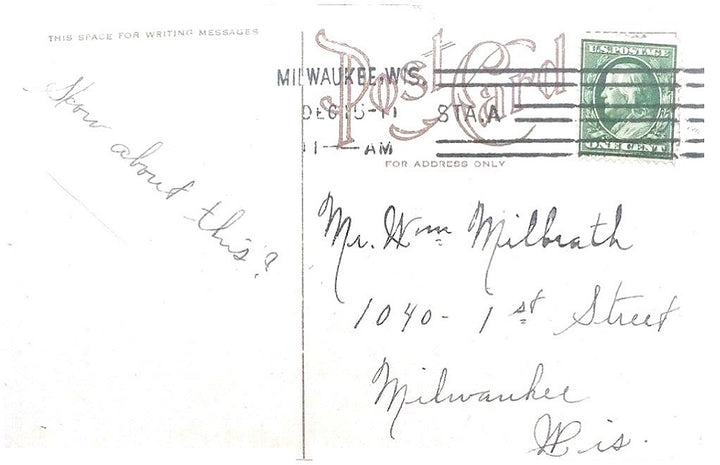 THIS SPACE FOR WRITING MESSAGES
Post Card
MILWAUKEE, WIS.
DEC 15-11
STA. A
11-AM
U.S. POSTAGE
ONE CENT
FOR ADDRESS ONLY
How about this?
Mr. Wm Milbrath
1040- 1st Street
Milwaukee
Wis.